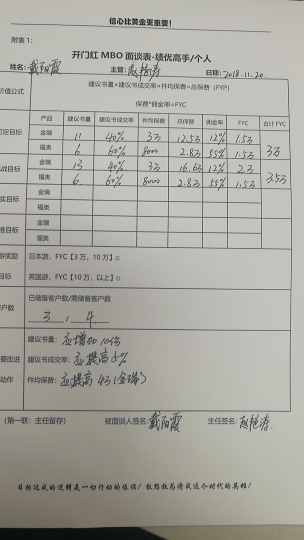 信心比黄金更重要！
附表 1：
开门红 MBO 面谈表-绩优高手/个人
姓名：戴丽霞 主管： 日期：2018.11.20.
价值公式 建议书量×建议书成交率×件均保费=总保费（FYP）
保费*佣金率=FYC
定目标 产品 建议书量 建议书成交率 件均保费 总保费 佣金率 FYC 合计 FYC
金瑞 11 40% 3万 12.5万 12% 1.5万 3万
福类 6 60% 8000 2.8万 55% 1.5万
战目标 金瑞 13 40% 3万 16.6万 12% 2万 3.5万
福类 6 60% 8000 2.8万 55% 1.5万
实目标 金瑞
福类
准目标 金瑞
福类
游奖励 日本游，FYC【3 万，10 万】□
目标 英国游，FYC【10 万，以上】□
客户数 已储备客户数/需储备客户数
3、4
建议书量：应增加10份
要改进 建议书成交率：应提高5%
动作 件均保费：应提高4万（金瑞）
（第一联：主任留存） 被面谈人签名：戴丽霞 主任签名：
目标达成的逻辑是一切行动的依据！敢想敢为将成这个时代的英雄！